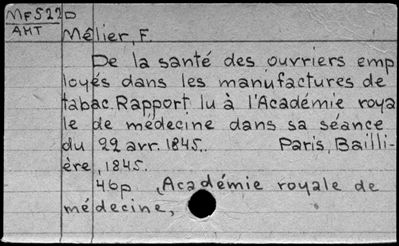 MF522D
AHT
Mélier, F.
De la santé des ouvriers emp
loyés dans les manufactures de
tabac. Rapport lu à l'Académie roya
le de médecine dans sa séance
du 22 avr. 1845. Paris, Bailli-
ère, 1845.
46p , Académie royale de
médecine,